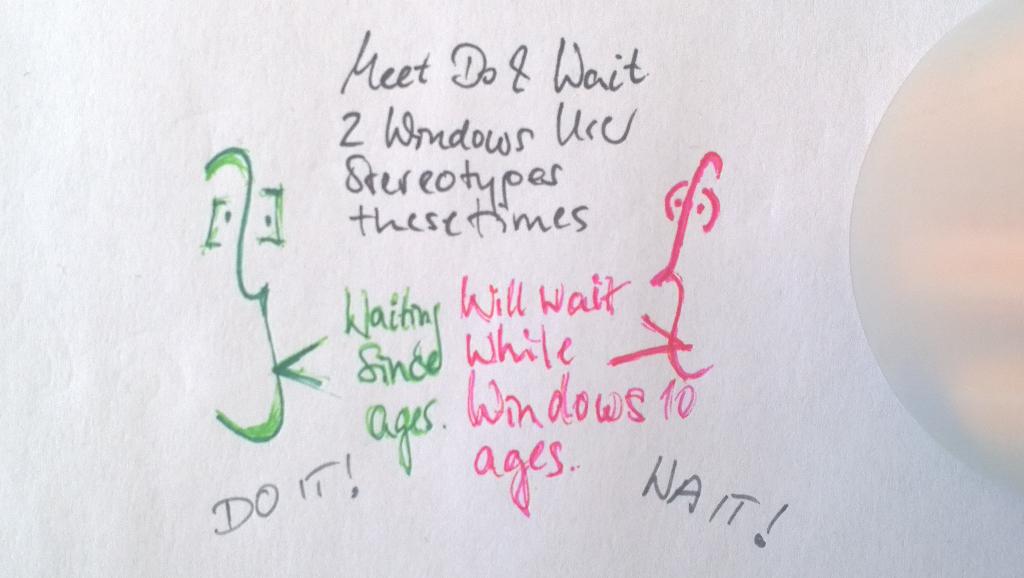 Meet Do & Wait
2 Windows User
Stereotypes
these times
Waiting
Since
ages.
Will wait
While
Windows 10
ages.
DO IT!
WAIT!